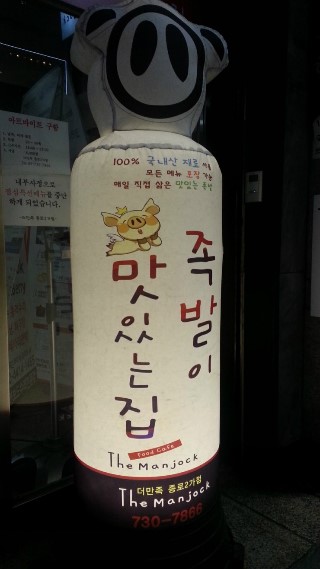 100% 국내산 재료 사용
모든 메뉴 포장 가능
매일 직접 삶은 맛있는 족발
족발이
맛있는 집
Food Cafe
The Manjock
더만족 종로2가점
The Manjock
730-7866
아르바이트 구함
내부사정으로
점심특선메뉴를 중단
하게 되었습니다.